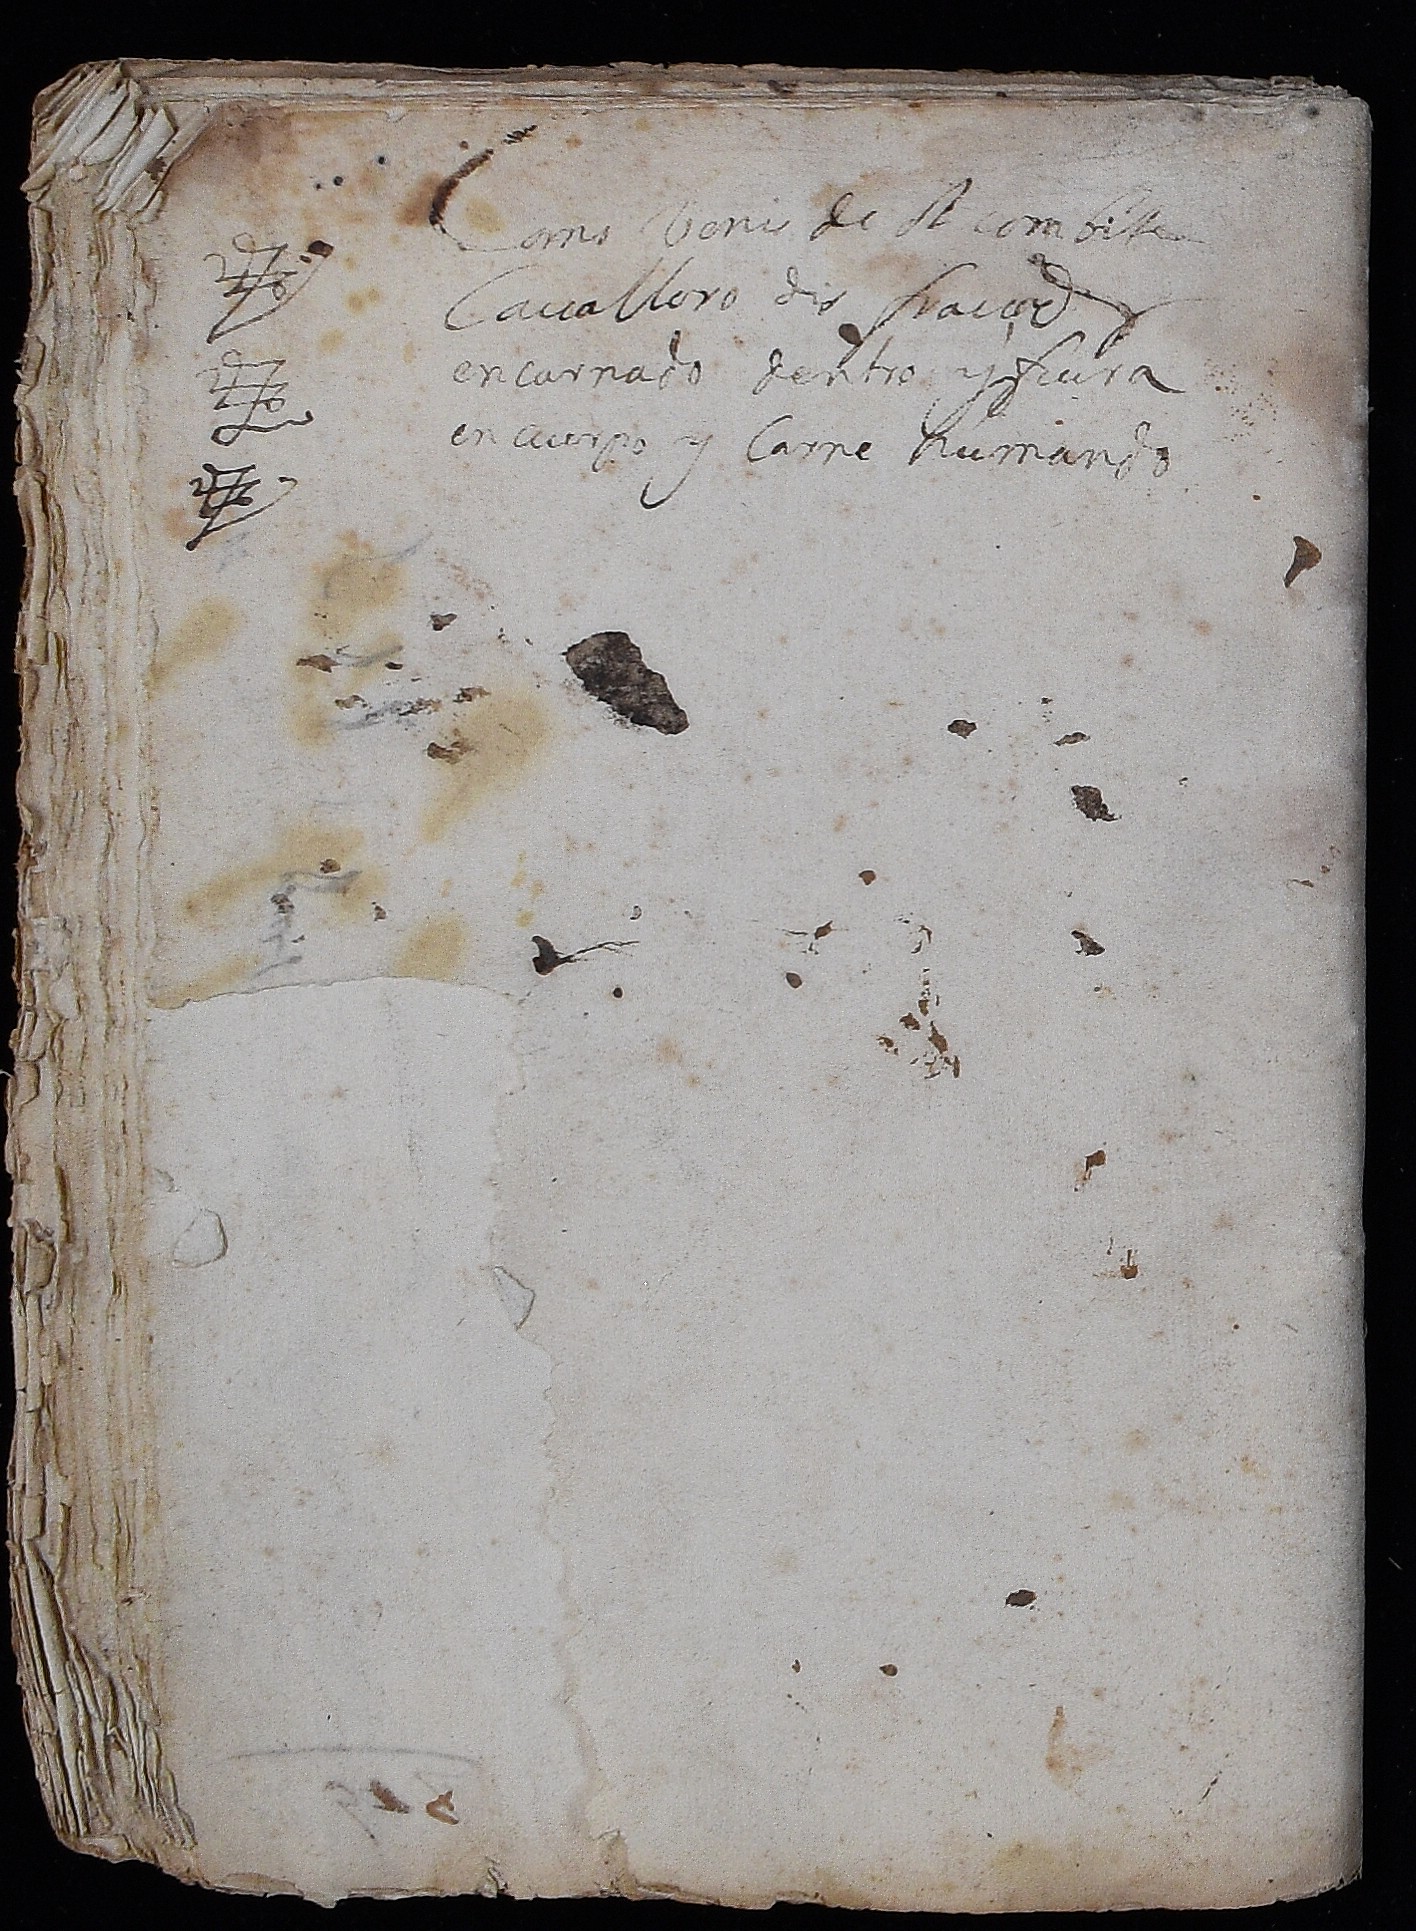 Como Venis de st combite
Cauallero dis fraçad
encarnado dentro y fuera
en cuerpo y Carne humando